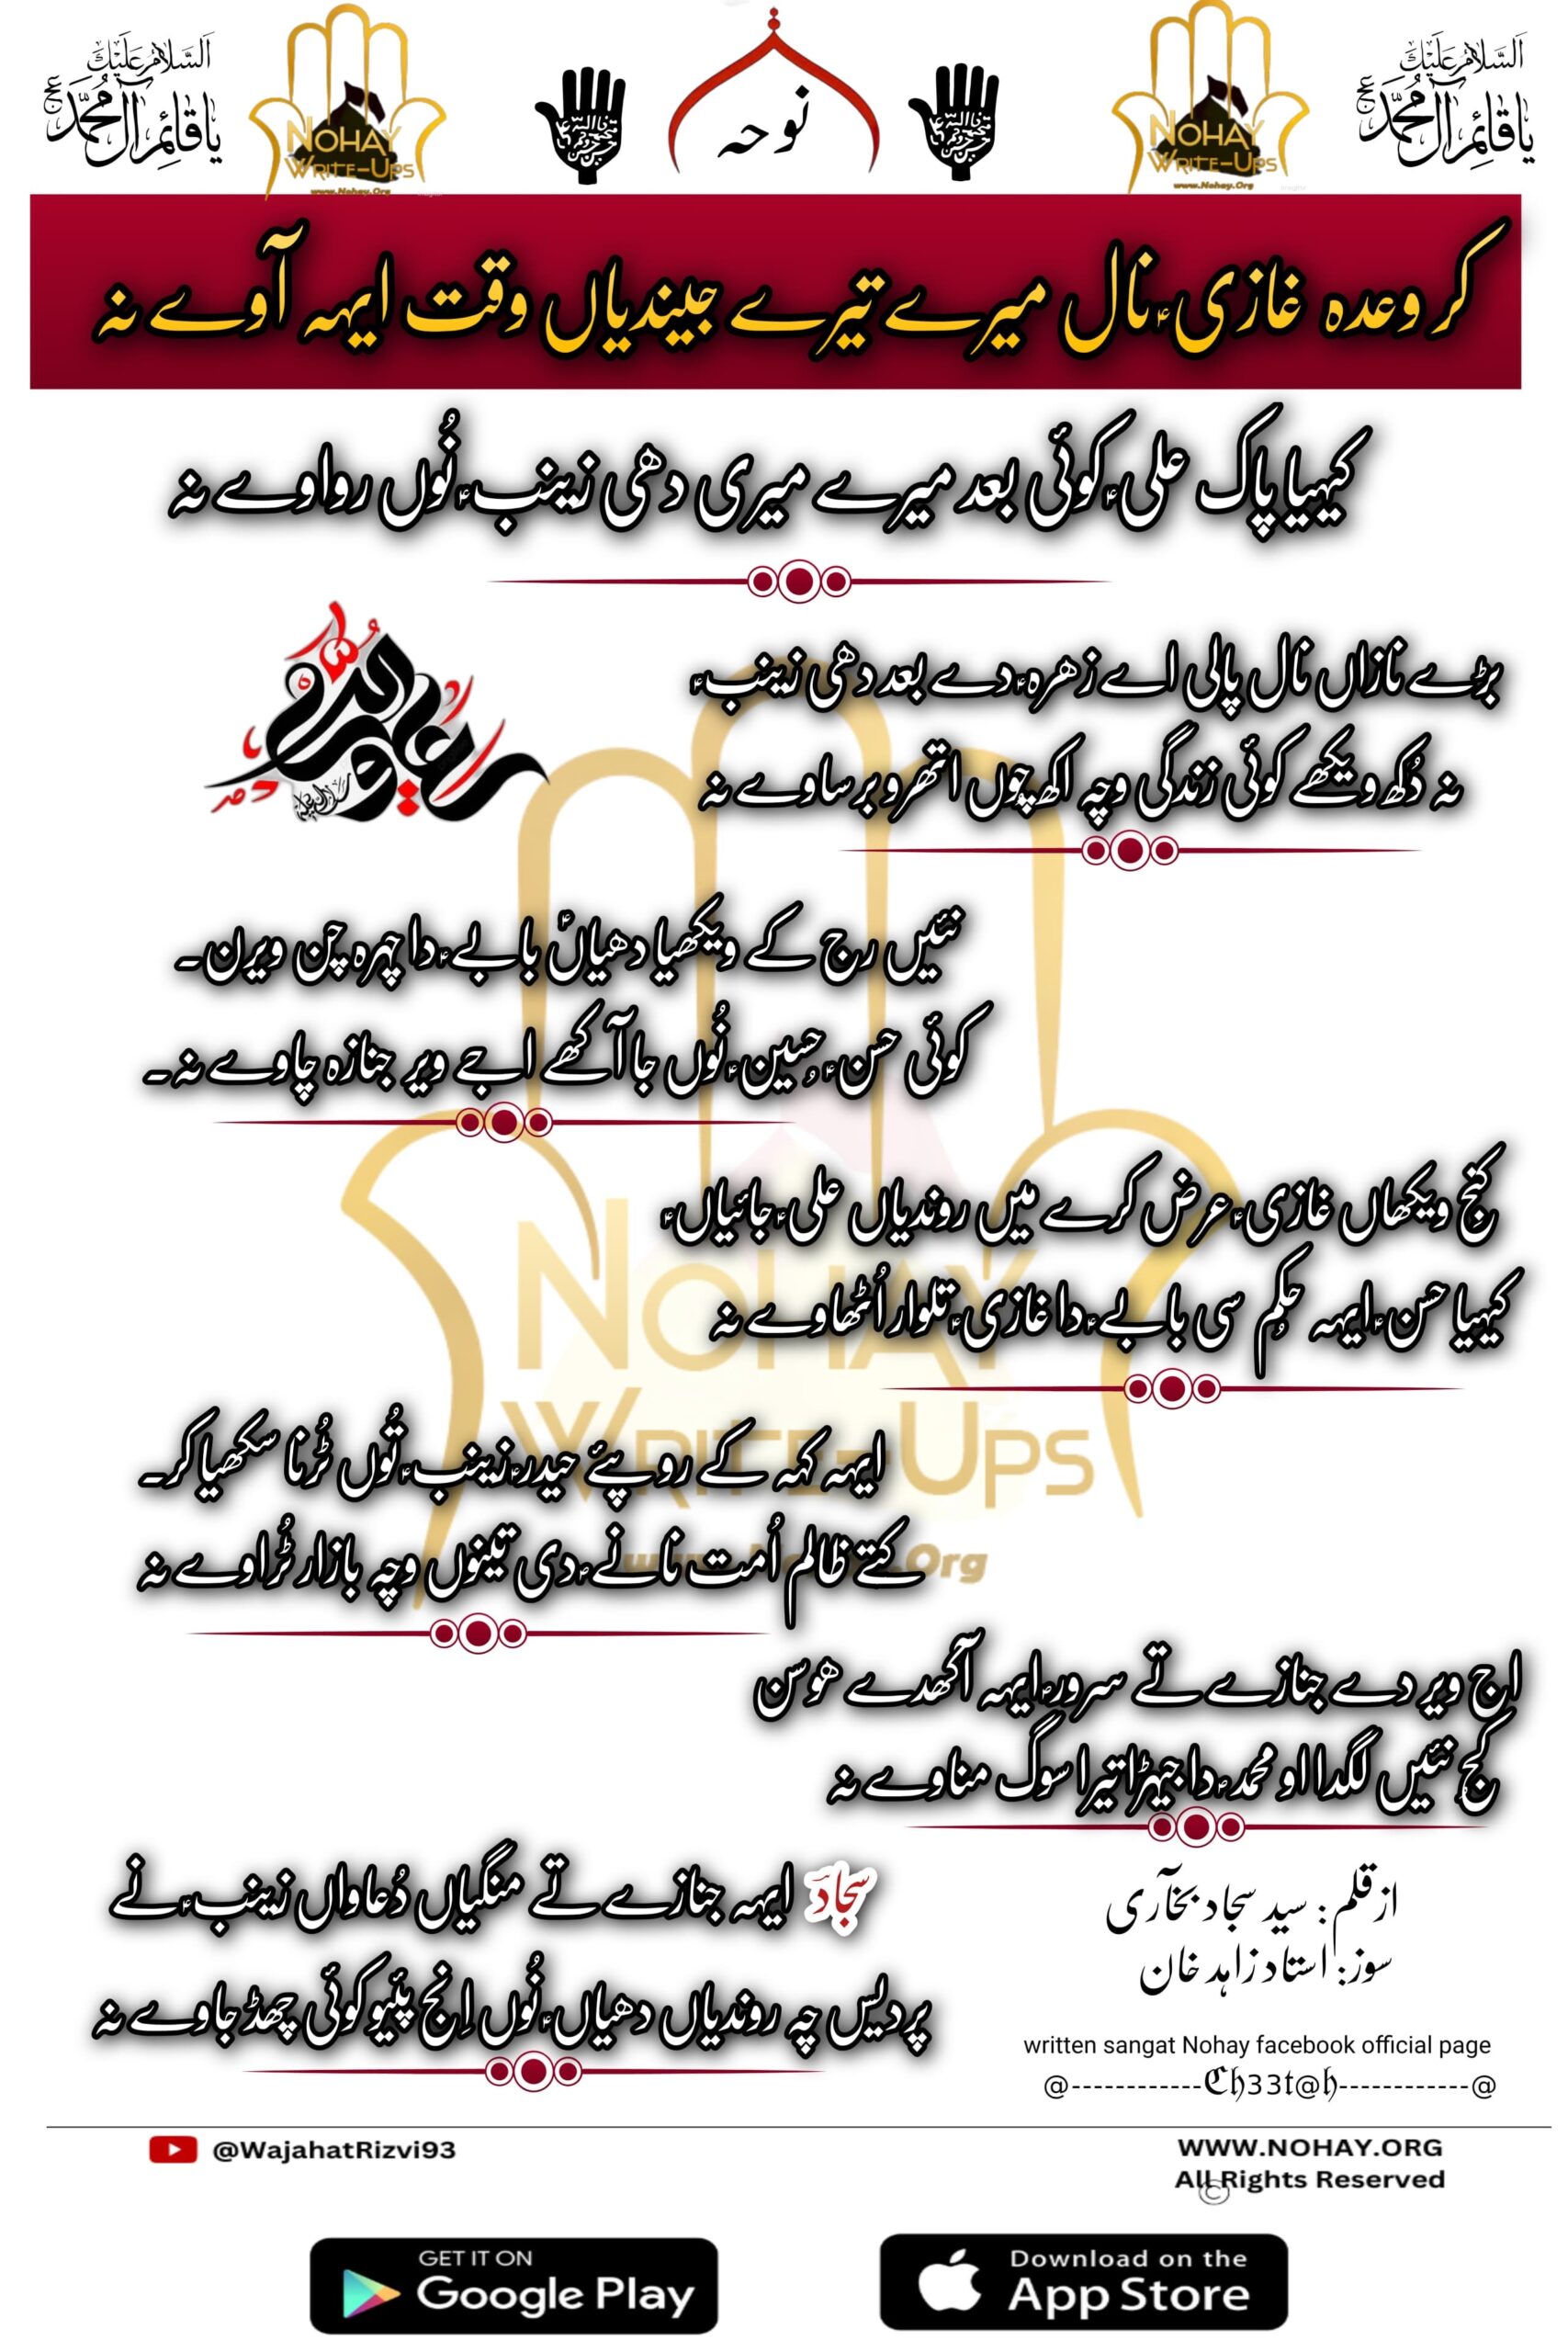 اَلسَّلامُ عَلَيْكَ
يا قائِمَ آلِ مُحَمَّد عج
NOHAY
WRITE-UPS
www.Nohay.Org
نوحہ
NOHAY
WRITE-UPS
www.Nohay.Org
اَلسَّلامُ عَلَيْكَ
يا قائِمَ آلِ مُحَمَّد عج
کر وعدہ غازیؑ نال میرے تیرے جیندیاں وقت ایہہ آوے نہ
کیہیا پاک علیؑ کوئی بعد میرے میری دھی زینبؑ نُوں رواوے نہ
بڑے نازاں نال پالی اے زھرہؑ دے بعد دھی زینبؑ
نہ دُکھ ویکھے کوئی زندگی وچہ اکھ چوں اتھرو برساوے نہ
نئیں رج کے ویکھیا دھیاںؑ بابےؑ دا چہرہ چن ویرن۔
کوئی حسنؑ حُسینؑ نُوں جا آکھے اجے ویر جنازہ چاوے نہ۔
کنج ویکھاں غازیؑ عرض کرے میں روندیاں علیؑ جائیاںؑ
کیہیا حسنؑ ایہہ حکم سی بابےؑ دا غازیؑ تلوار اُٹھاوے نہ
ایہہ کہہ کے روپئے حیدرؑ زینبؑ تُوں ٹُرنا سکھیا کر۔
کتے ظالم اُمت نانےؑ دی تینوں وچہ بازار ٹُراوے نہ
NOHAY
WRITE-UPS
www.Nohay.Org
اج ویر دے جنازے تے سرورؑ ایہہ آکھدے ھوسن
کُج نئیں لگدا او محمدؑ دا جیہڑا تیرا سوگ مناوے نہ
سجادؔ ایہہ جنازے تے منگیاں دُعاواں زینبؑ نے
پردیس چہ روندیاں دھیاںؑ نُوں اِنج پئیو کوئی چھڈ جاوے نہ
از قلم: سید سجاد بخآری
سوز: استاد زاہد خان
written sangat Nohay facebook official page
@------------ℭ𝔥33t@𝔥------------@
@WajahatRizvi93
WWW.NOHAY.ORG
All Rights Reserved
©
GET IT ON
Google Play
Download on the
App Store